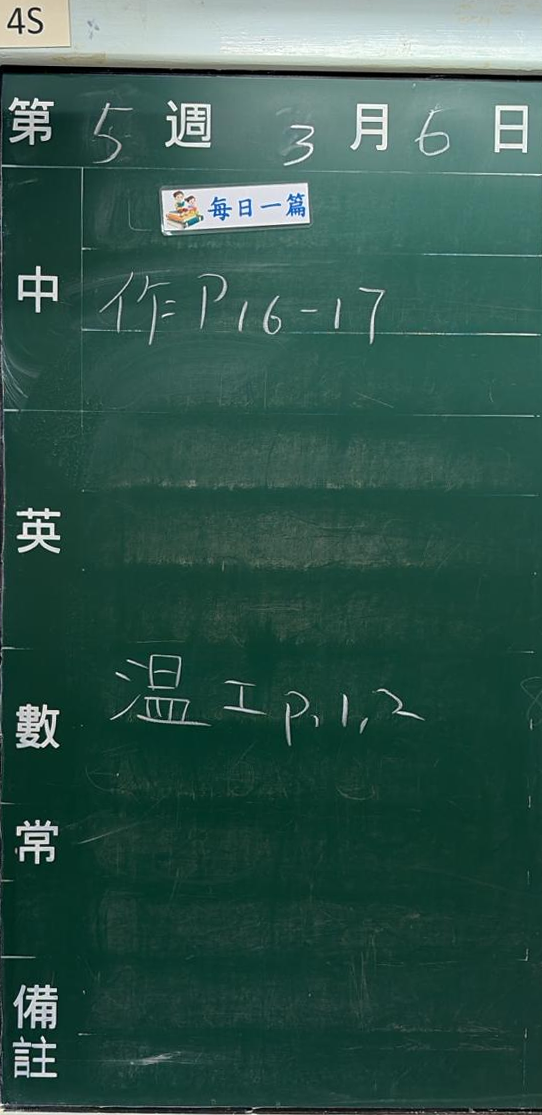 4S
第 5 週 3 月 6 日
每日一篇
中
作 P16-17
英
數
温工 p.1,2
常
備註